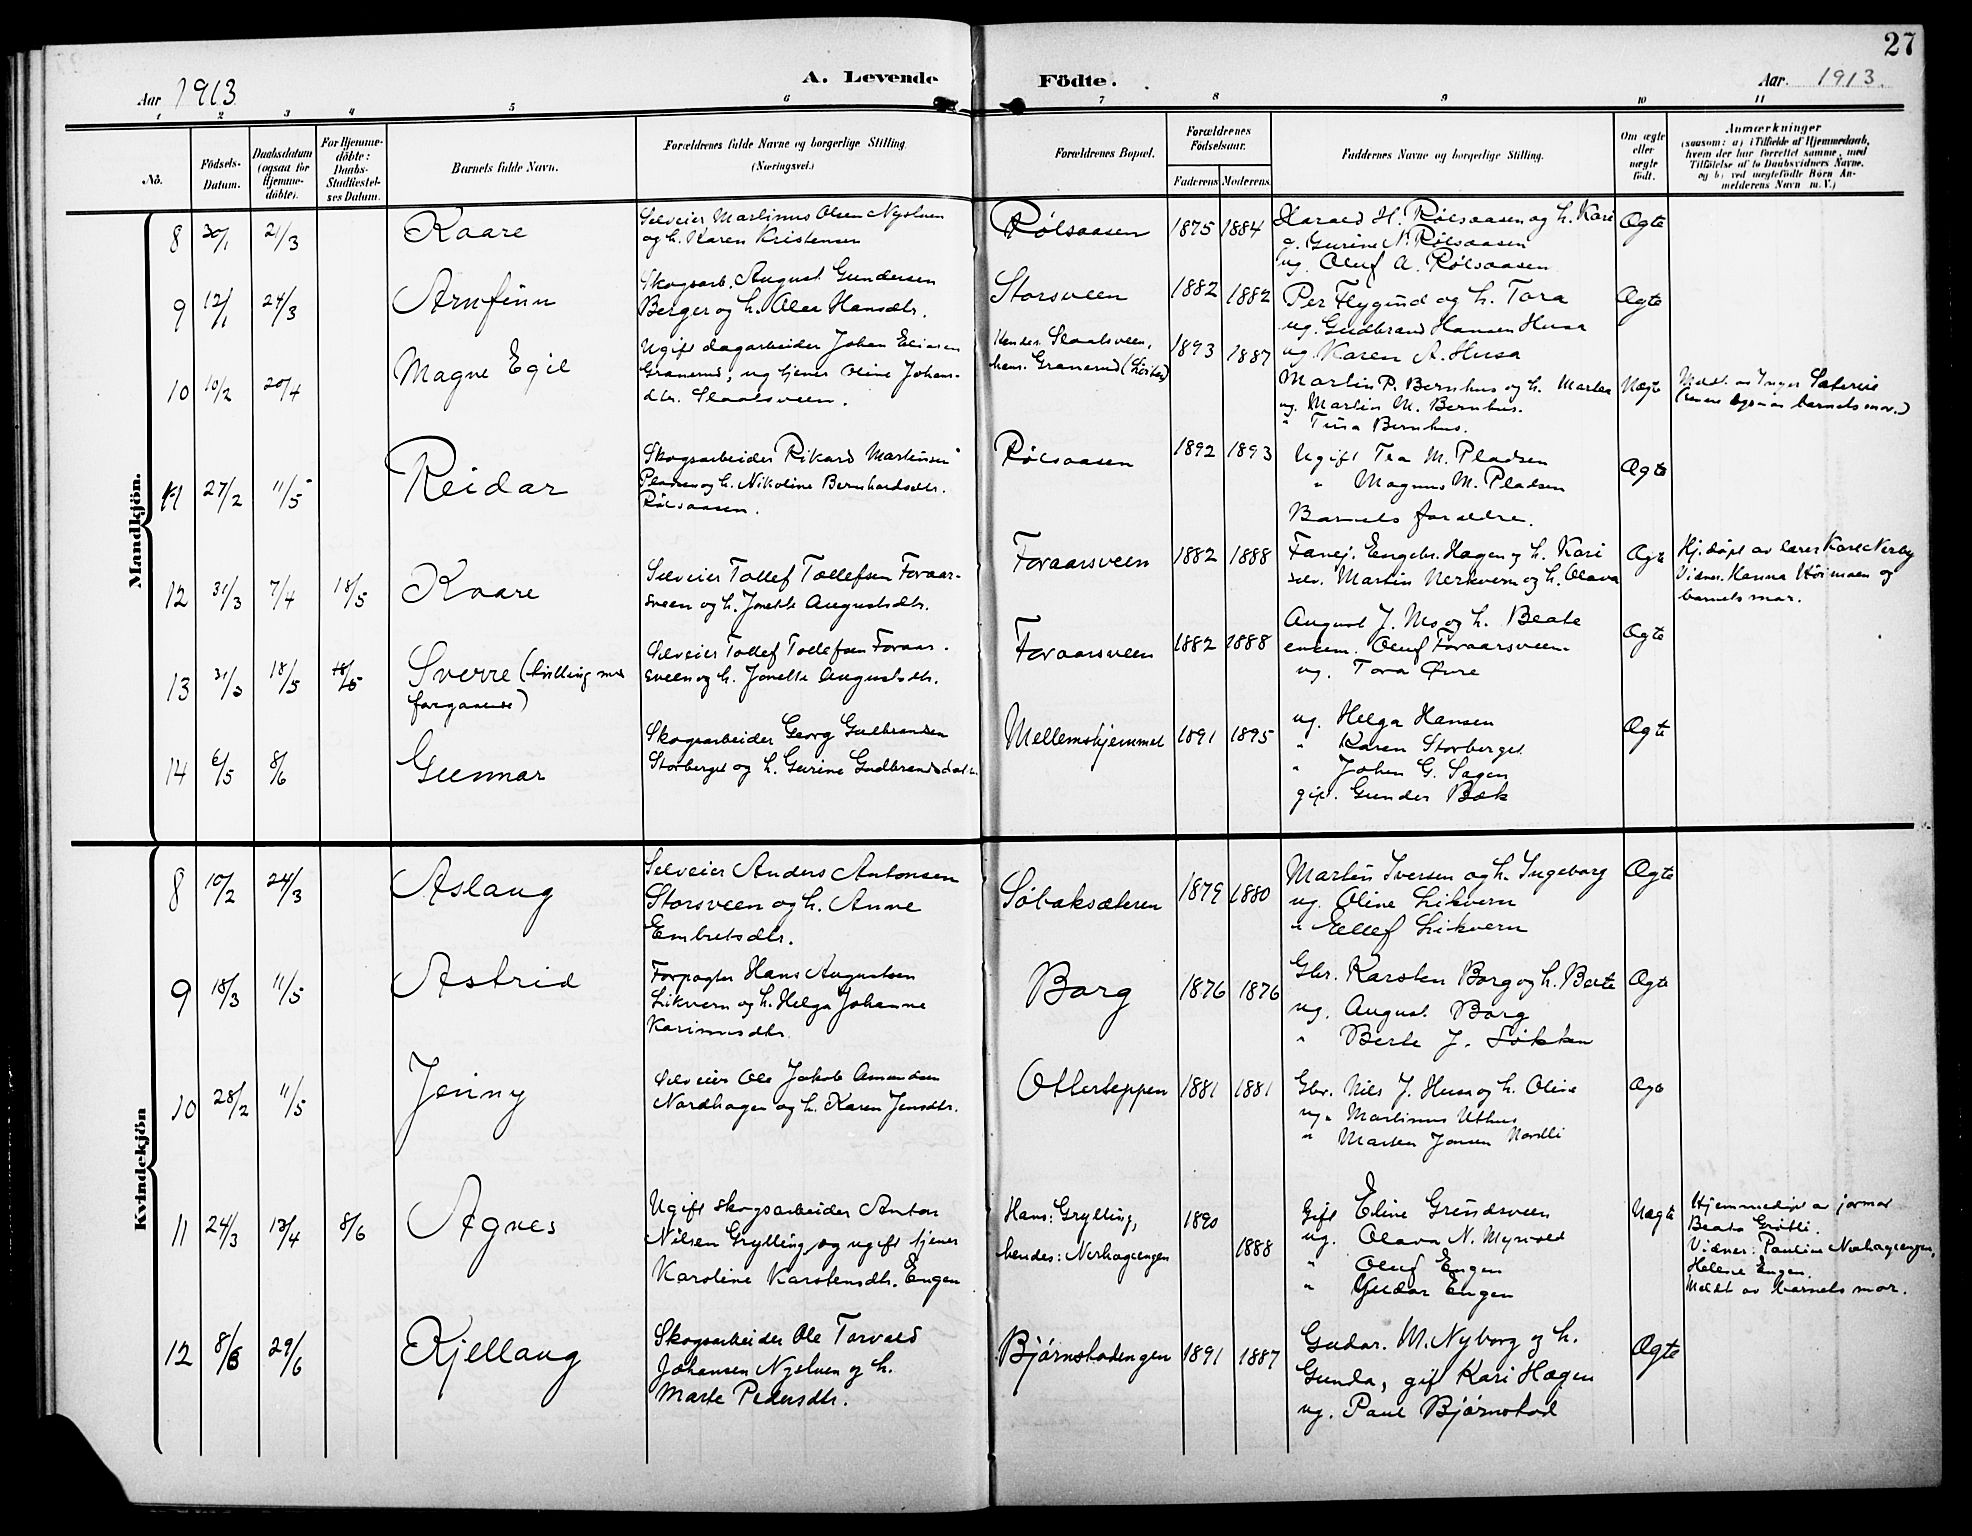 27
A. Levende Födte.
Aar 1913
Aar. 1913.
1 2 3 4 5 6 7 8 9 10 11
No.
Födsels-Datum.
Daabsdatum (ogsaa for Hjemme-döbte).
For Hjemme-döbte: Daabs-Stadfæstel-ses Datum.
Barnets fulde Navn.
Forældrenes fulde Navne og borgerlige Stilling.
(Næringsvei.)
Forældrenes Bopæl.
Forældrenes Födselsaar.
Faderens Moderens
Faddernes Navne og borgerlige Stilling.
Om ægte eller uægte födt.
Anmærkninger
(saasom: a) i Tilfælde af Hjemmedaab,
hvem der har forrettet samme, med
Tilföielse af to Daabsvidners Navne,
og b) ved uægtefödte Börn An-
melderens Navn m. V.)
Mandkjön.
8 30/1 21/3 Kaare
Selveier Martinus Olsen Nysluen
og h. Karen Kristensen
Rølsaasen 1875 1884
Harald H. Rølsaasen og h. Kari
g. Gurine N. Rølsaasen
ug. Oluf A. Rølsaasen
Ægte
9 12/1 24/3 Arnfinn
Skogsarb. August Gundersen
Berger og h. Olea Hansdtr.
Storsveen 1882 1882
Per Flygind og h. Tora
ug. Gudbrand Hansen Husa
ug. Karen A. Husa
Ægte
10 10/2 20/4 Magne Egil
Ugift dagarbeider Johan
Granerud, ug tjener Oline Johans-
dtr. Slaatsveen.
Hendes Slaatsveen,
hans. Granerud
1893 1887
Martin P. Bernhus og h. Martea
ug. Martin M. Bernhus.
" Tina Bernhus.
Uægte
Meldt av Inger Sæterlie
barnets mor.)
11 27/2 11/5 Reidar
Skogsarbeider Rikard Martinsen
Pladsen og h. Nikoline Bernhardsdtr.
Rølsaasen.
Rølsaasen 1892 1893
Ugift Tea M. Pladsen
" Magnus M. Pladsen
Barnets foreldre.
Ægte
12 31/3 7/4 18/5 Kaare
Selveier Tollef Tollefsen Foraar-
sveen og h. Jonette Augustsdtr.
Foraarsveen 1882 1888
Engebr. Hagen og h. Kari
selv. Martin Nerkvern og h. Olava
Ægte
Hj.døpt av lærer Kare Nerby
Vidner. Hanna og
barnets mor.
13 31/3 18/5 18/5 Sverre (tvilling med
forgaaende)
Selveier Tollef Tollefsen Foraar-
sveen og h. Jonette Augustsdtr.
Foraarsveen 1882 1888
August J. Mo og h. Beate
enkem. Oluf Foraarsveen
ug. Tora Øvre
Ægte
14 6/5 8/6 Gunnar
Skogsarbeider Georg Gulbrandsen
Storberget og h. Gurine Gudbrandsdatter
Mellemshjemmet 1891 1895
ug. Helga Hansen
" Karen Storberget
" Johan G. Sagen
gift. Gunder Bæk
Ægte
Kvindekjön
8 10/2 24/3 Aslaug
Selveier Anders Antonsen
Storsveen og h. Anne
Embretsdtr.
Søbaksæteren 1879 1880
Martin Iversen og h. Ingeborg
ug. Oline Likvern
" Ellef Likvern
Ægte
9 18/3 11/5 Astrid
Forpagter Hans Augustsen
Likvern og h. Helga Johanne
Karinusdtr.
Borg 1876 1876
Gbr. Karsten Borg og h. Berte
ug. August Borg
" Berte J. Løkken
Ægte
10 28/2 11/5 Jenny
Selveier Ole Jakob Amundsen
Nordhagen og h. Karen Jensdtr.
Otterteppen 1881 1881
Gbr. Nils J. Husa og h. Oline
ug. Martinus Uthus
" Marten Jonsen Nordli
Ægte
11 24/3 13/4 8/6 Agnes
Ugift skogsarbeider Anton
Nilsen Grylling og ugift tjener
Karoline Karstensdtr. Engen
Hans: Grylling,
hendes: Nerhagengen
1890 1888
Gift Eline Grindsveen
ug. Olava N. Myrvold
" Oluf Engen
" Gudar Engen
Uægte
Hjemmedøpt av jormor
Beate Grøtli.
Vidner: Pauline Nerhagengen,
Helene Engen.
Meldt av barnets mor.
12 8/6 29/6 Kjellaug
Skogsarbeider Ole Torvald
Johansen Nysluen og h.
Marte Pedersdtr.
Bjørnstadengen 1891 1887
Gudar. M. Nyborg og h.
Gunda, gift Kari Hagen
ug. Paul Bjørnstad
Ægte